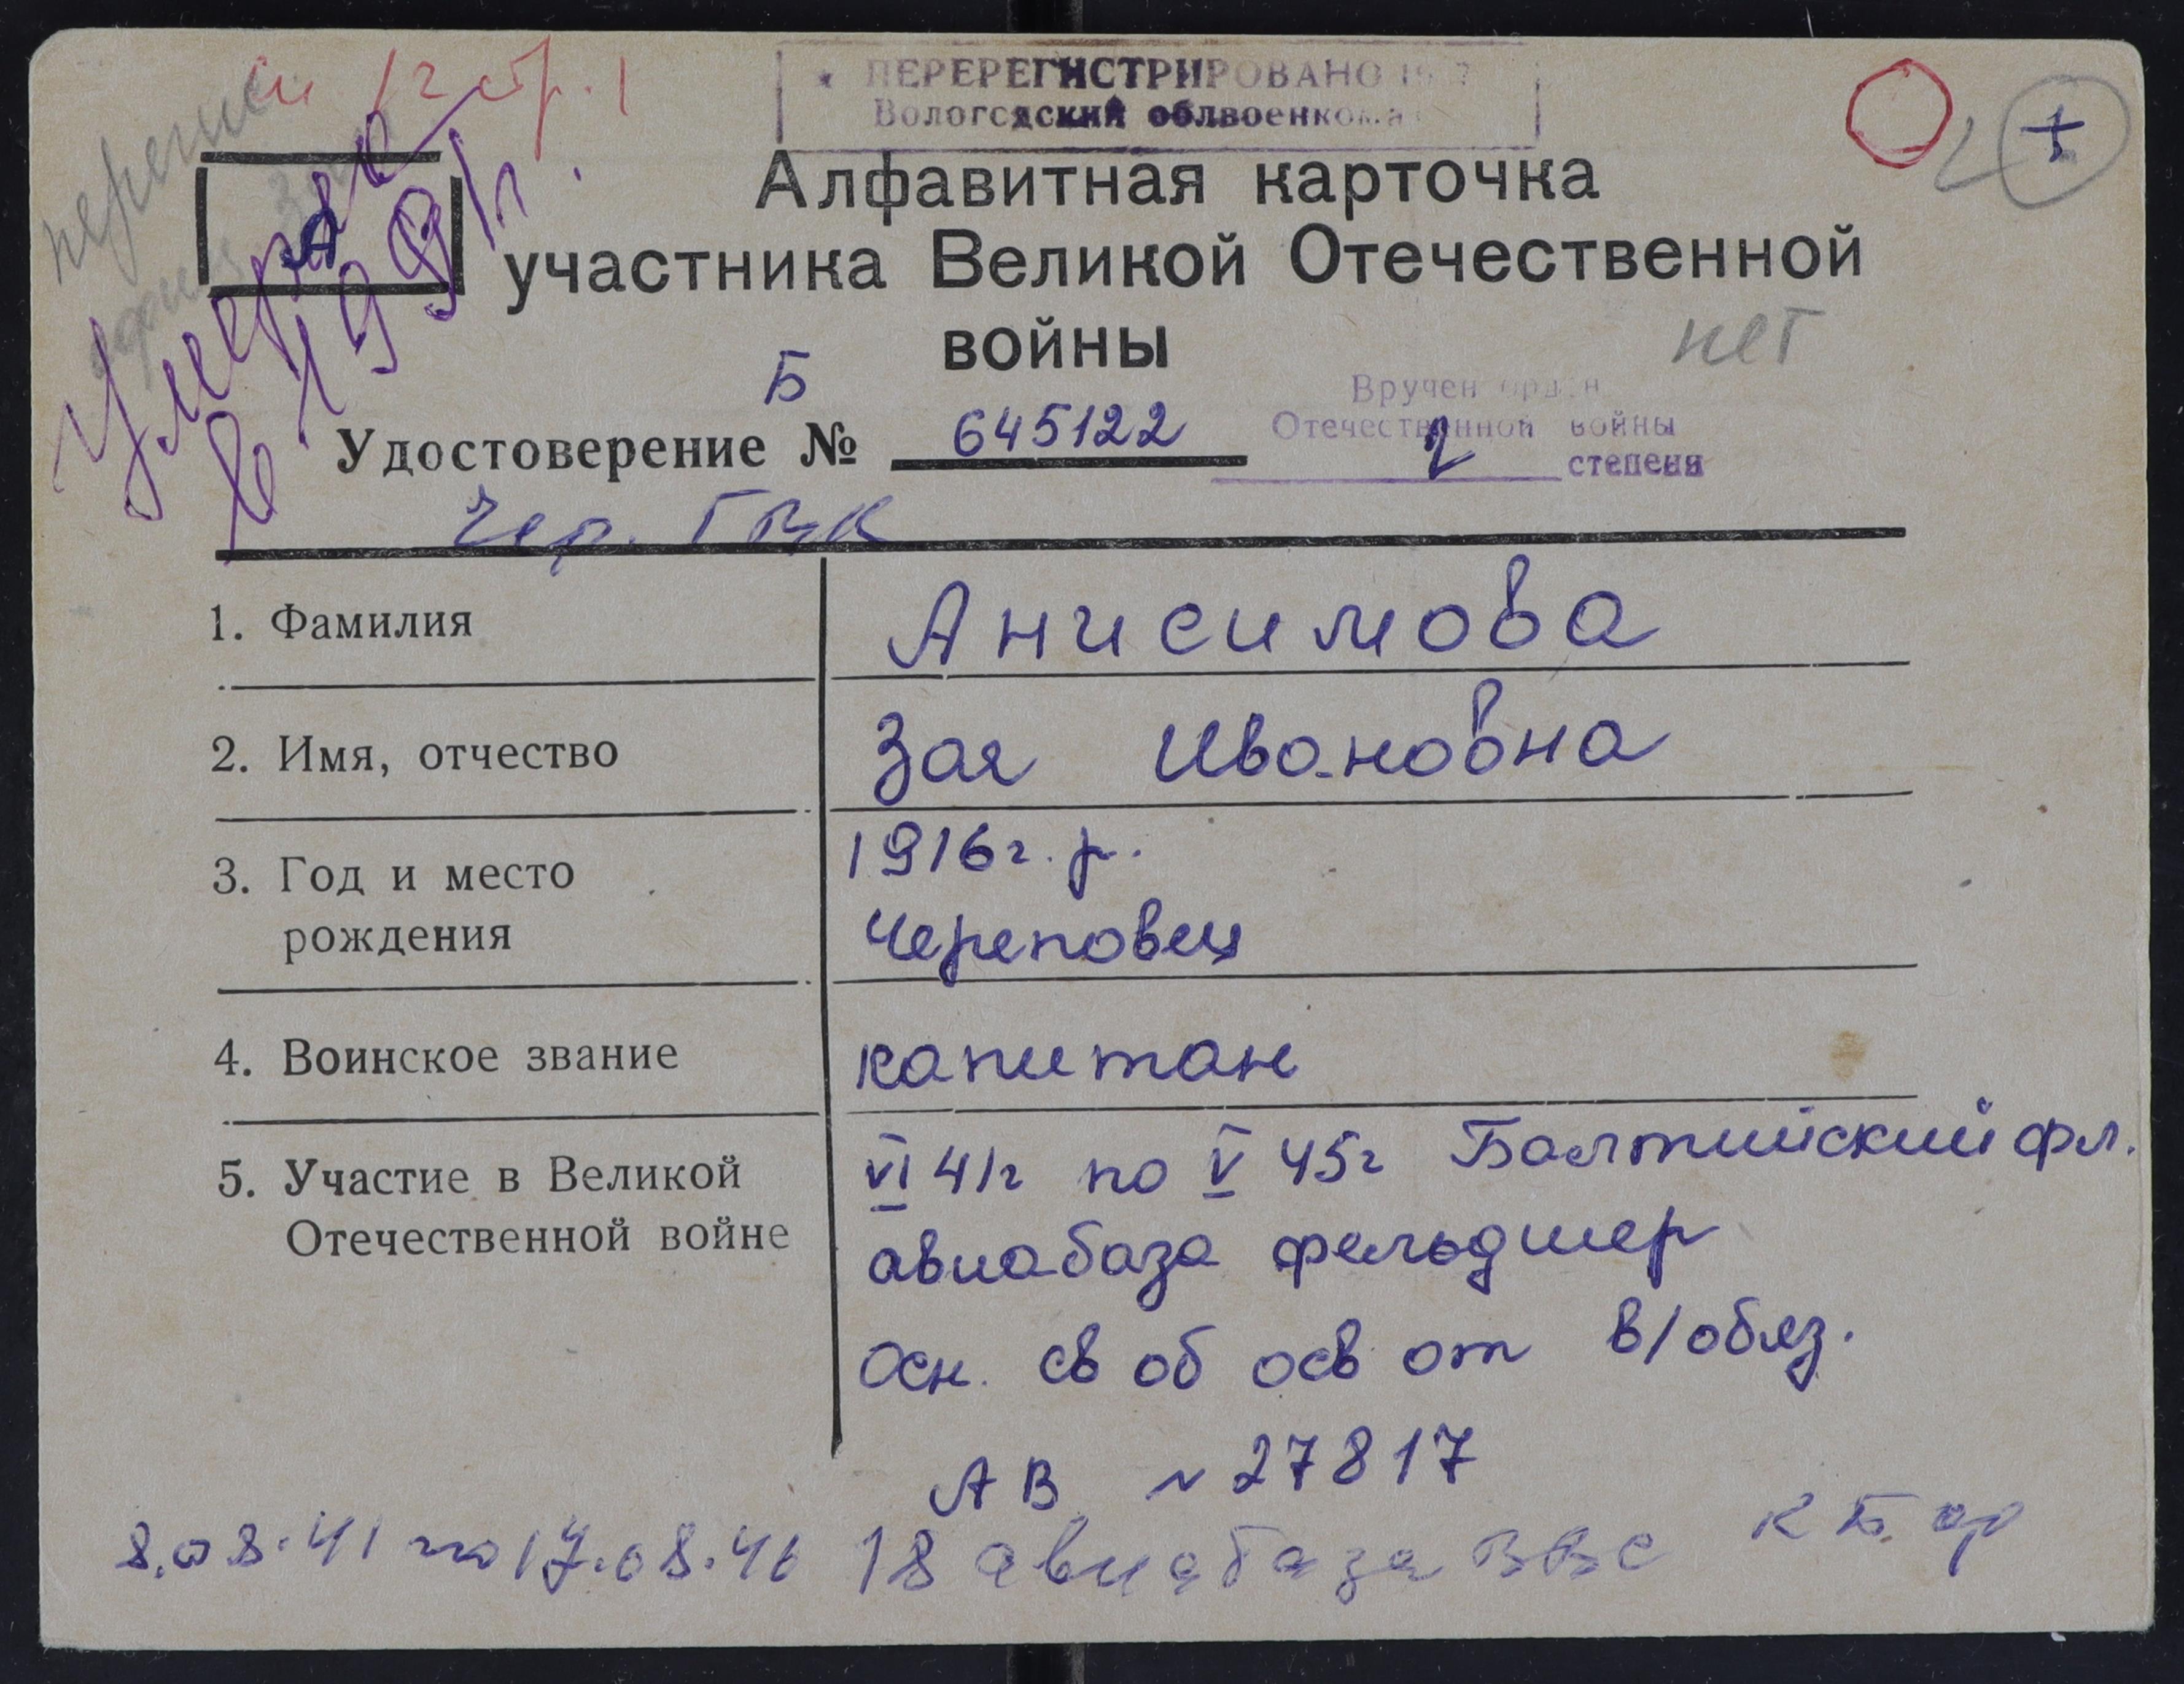 12 стр. 1
ПЕРЕРЕГИСТРИРОВАНО
Вологодский облвоенкомат
А
Умерла
в 1991г.
Алфавитная карточка
участника Великой Отечественной
войны
нет
Б
Удостоверение № 645122
Вручен орден
Отечественной войны
2 степени
Чер. ГВК
1. Фамилия Анисимова
2. Имя, отчество Зоя Ивановна
3. Год и место 1916г.р.
рождения Череповец
4. Воинское звание капитан
5. Участие в Великой VI 41г по V 45г Балтийский фл.
Отечественной войне авиабаза фельдшер
осн. св об осв от в/обяз.
АВ № 27817
8.08.41 по 17.08.46 18 авиабаза ВВС